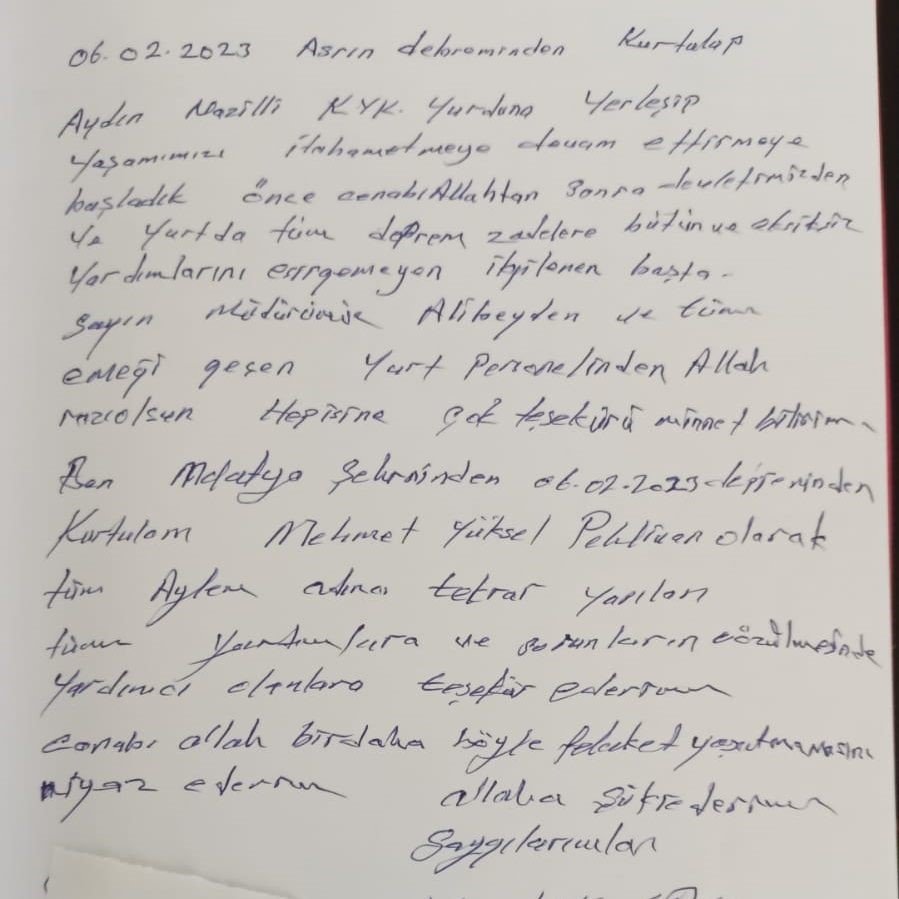 06.02.2023 Asrın debreminden Kurtulap
Aydın Nazilli KYK. Yurduna Yerleşip
Yaşamımızı devam ettirmeye
başladık önce cenabıAllahtan sonra devletimizden
ve Yurtda tüm deprem zadelere bütün ve eksiksiz
Yardımlarını esirgemeyen ilgilenen başta.
Sayın Müdürümüz Alibeyden ve tüm
emeği geşen Yurt Personelinden Allah
razıolsun Hepisine çok teşekürü minnet bilirim
Ben Malatya Şehrninden 06.02.2023
Kurtulam Mehmet Yüksel Pehlivan olarak
tüm Aylem adına tekrar yapılan
tüm yardımlara ve sorunların çözülmesinde
Yardımcı olanlara teşekür ederım
cenabı allah birdaha böyle felaket yaşatmamasını
niyaz ederım allaha şükrederım
Saygılarımlan